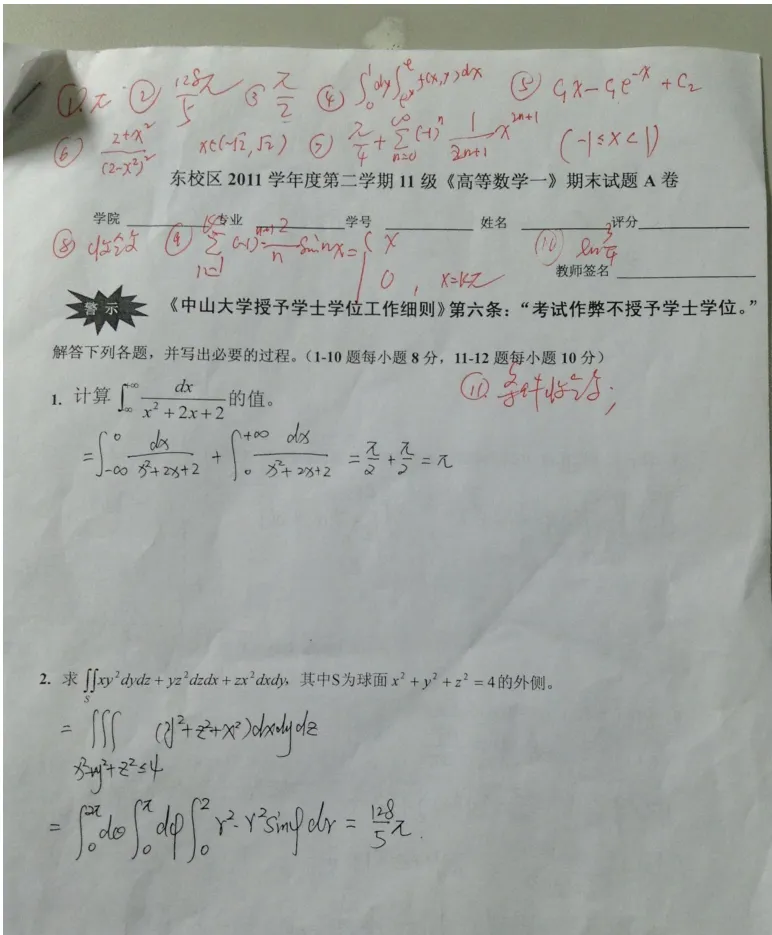 ① π ② 128π/5 ③ π/2 ④ ∫₀¹dy∫_{e^y}^{e} f(x,y)dx ⑤ C₁x-C₁e^{-x}+C₂
⑥ (2+x²)/(2-x²)² x∈(-√2,√2) ⑦ π/4+∑_{n=0}^{∞}(-1)ⁿ 1/(2n+1) x^{2n+1} (-1≤x<1)
东校区 2011 学年度第二学期 11 级《高等数学一》期末试题 A 卷
学院 专业 学号 姓名 评分
⑧ 收敛 ⑨ ∑_{n=1}^{∞}(-1)^{n+1} 2/n sin nx = { x
0, x=kπ
⑩ ln 3/4
教师签名
警示 《中山大学授予学士学位工作细则》第六条：“考试作弊不授予学士学位。”
解答下列各题，并写出必要的过程。（1-10 题每小题 8 分，11-12 题每小题 10 分）
⑪ 条件收敛；
1. 计算 ∫_{-∞}^{+∞} dx/(x²+2x+2) 的值。
=∫_{-∞}^{0} dx/(x²+2x+2) + ∫_{0}^{+∞} dx/(x²+2x+2) = π/2+π/2=π
2. 求 ∬_S xy²dydz+yz²dzdx+zx²dxdy，其中S为球面 x²+y²+z²=4 的外侧。
= ∭_{x²+y²+z²≤4} (y²+z²+x²)dxdydz
= ∫₀^{2π}dθ∫₀^{π}dφ∫₀² r²·r²sinφdr = 128/5 π.